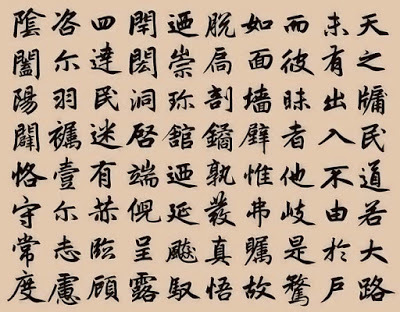 天之牖民道若大路
未有出入不由於戶
而彼昧者他岐是騖
如面墻壁惟弗矚故
脫扃剖鐍孰發真悟
迺崇珎館迺延飈馭
閈閎洞啓端倪呈露
四達民迷有恭臨顧
咨尔羽壹尔志慮
陰闔陽闢恪守常度